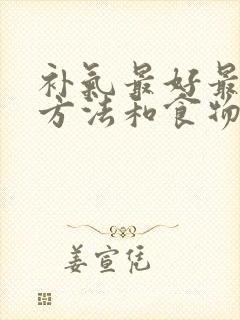 补氣最好最
方法和食物
姜宣凭